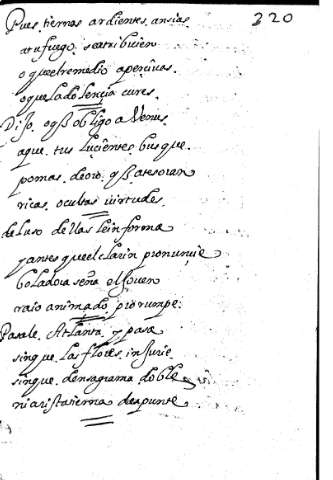 220
Pues. tiernas ardientes. ansias.
atu fuego. seatribuien
o queelremedio aperçivas.
o que la dolençia cures.
Dijo. oqȝ obligo a Venus
aque. tus luçientes busque.
pomas. deoro. qȝ atesoran
ricas. ocultas virtudes.
deluso dellas leinforma
y antes queel clarin pronunçie
boladora seña el Jouen
raio animado. prorumpe.
Pasale. Atlanta. y pasa
sinque. las flores. injurie.
sinque. densagrama doble
ni arista tierna despunte.